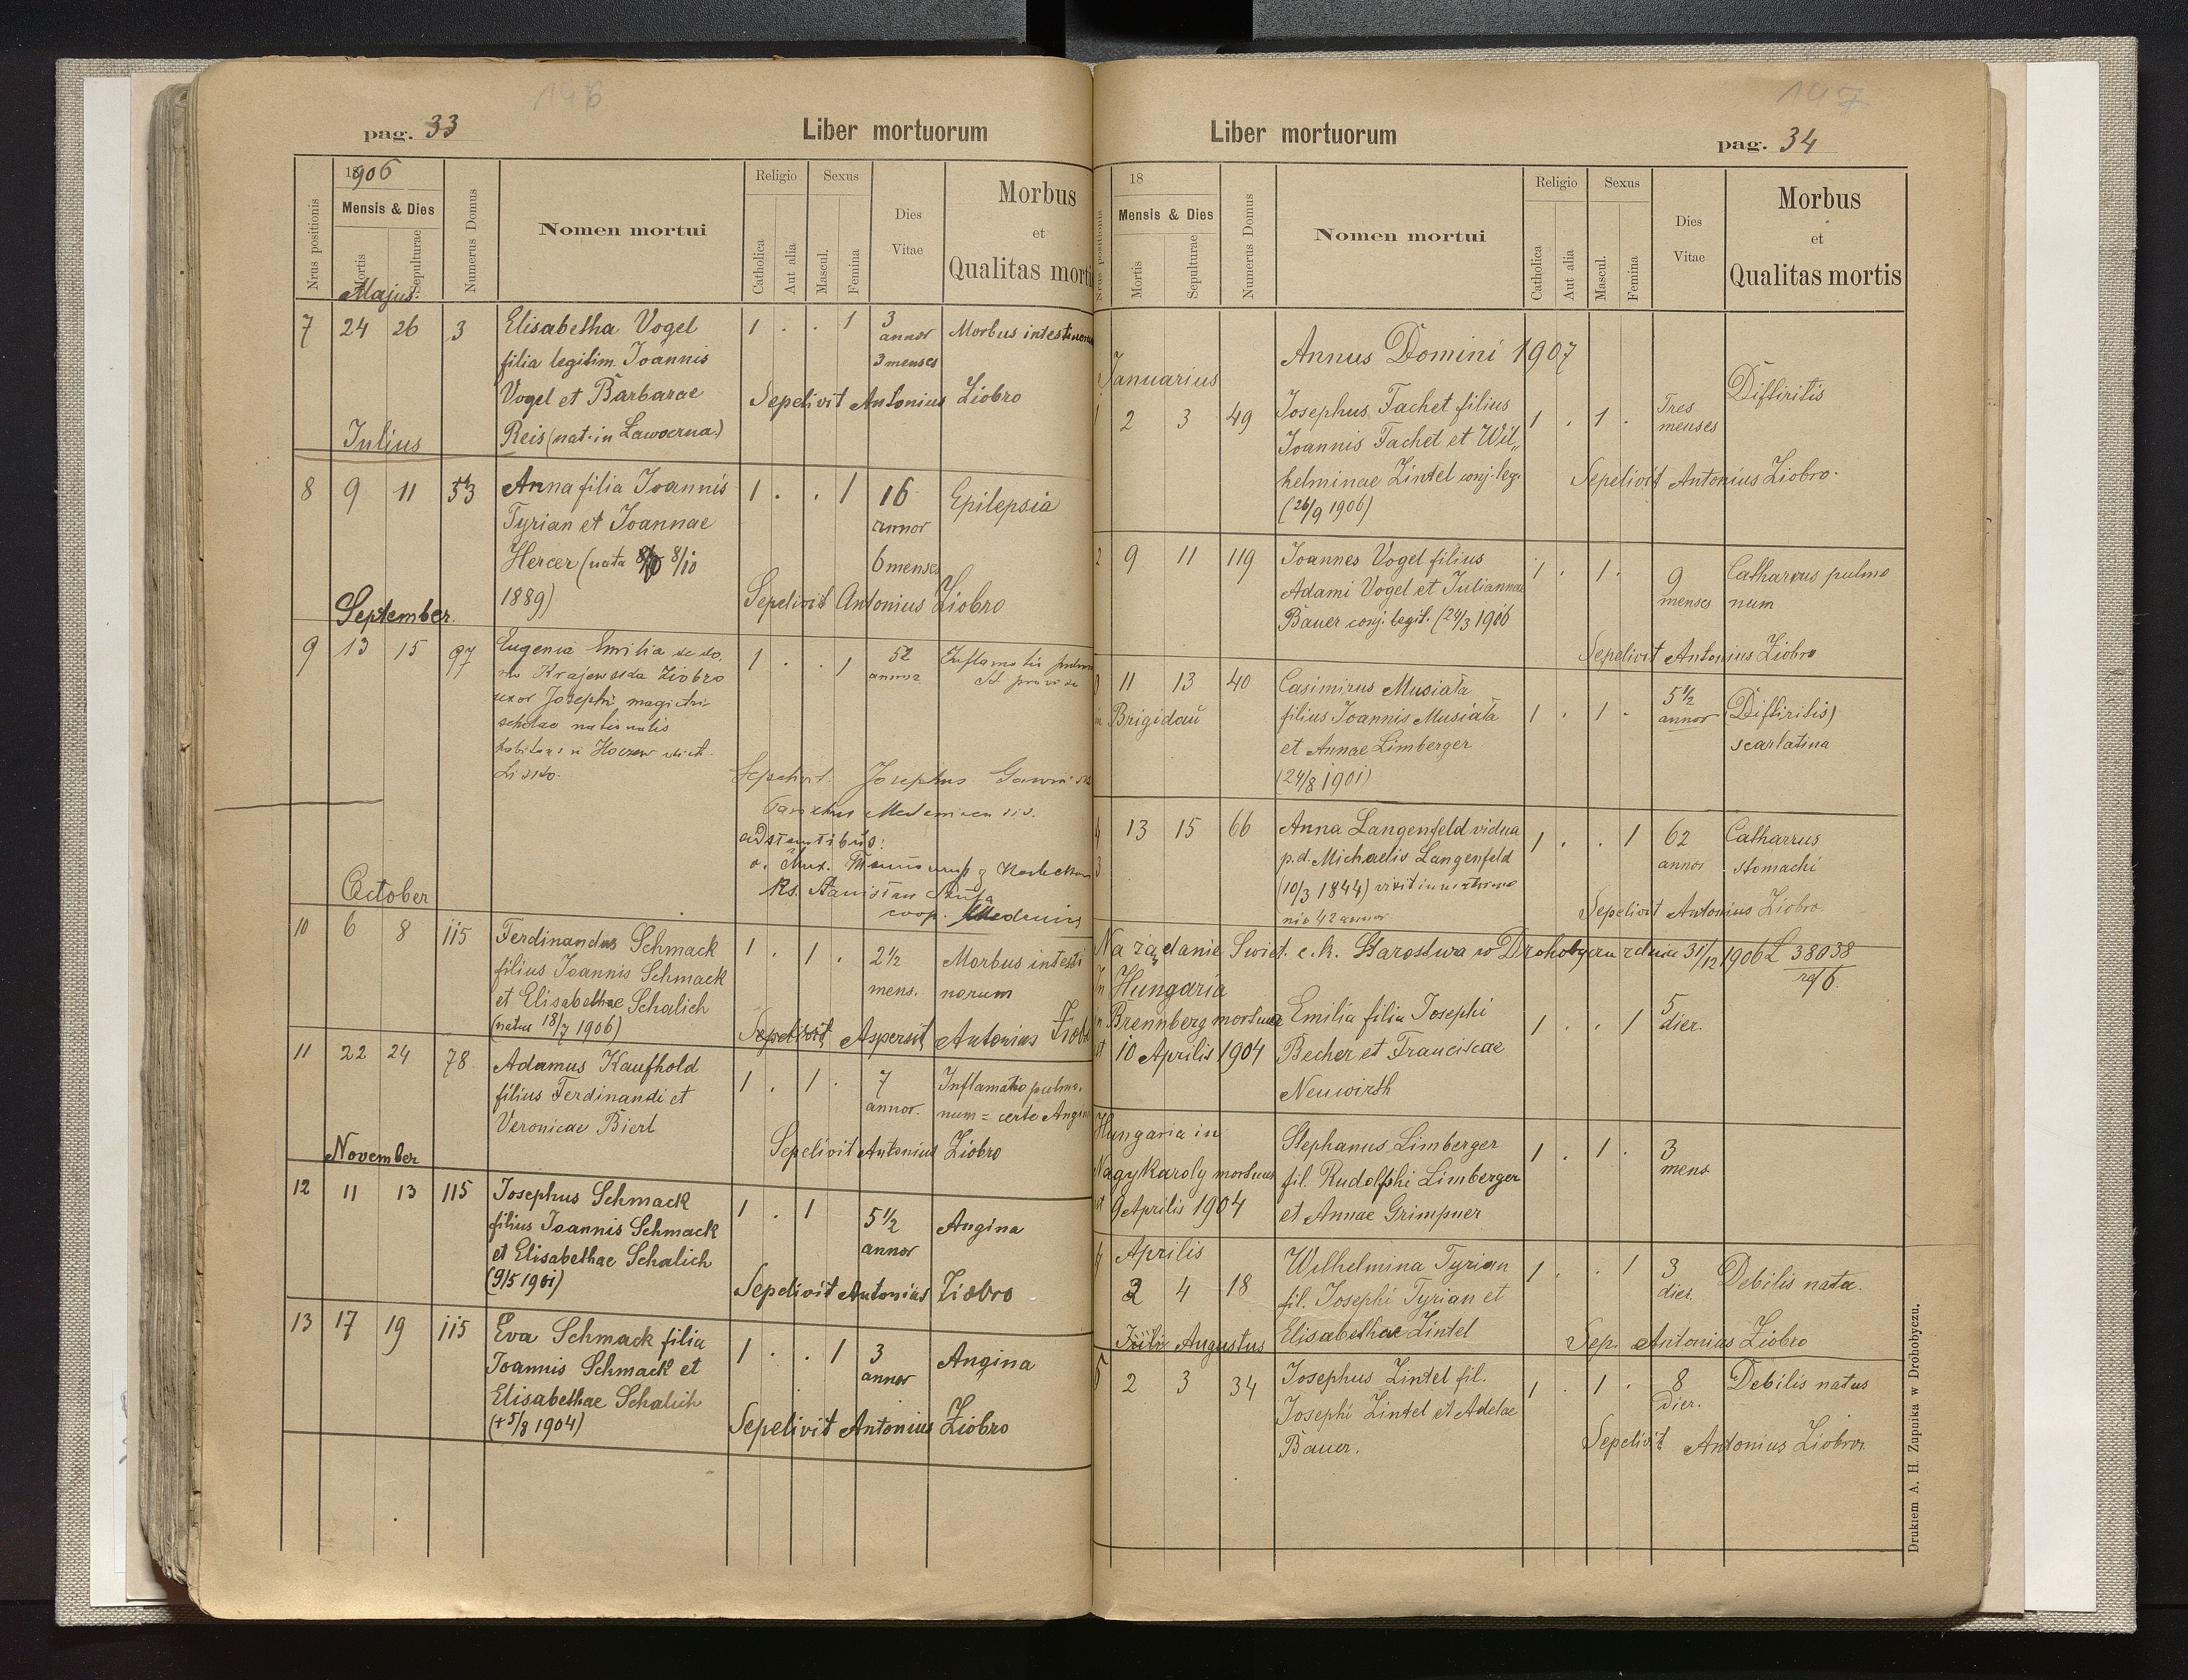 146
pag. 33
Liber mortuorum
Nrus positionis
1906
Mensis & Dies
Mortis
Sepulturae
Numerus Domus
Nomen mortui
Religio
Catholica
Aut alia
Sexus
Mascul.
Femina
Dies
Vitae
Morbus
et
Qualitas mortis
Majus
7 24 26 3 Elisabetha Vogel 1 . . 1 3 Morbus intestinorum
filia legitim. Joannis annor
Vogel et Barbarae 3 menses
Reis (nat. in Ławoczna) Sepelivit Antonius Ziobro
Julius
8 9 11 53 Anna filia Joannis 1 . . 1 16 Epilepsia
Tyrian et Joannae annor
Hercer (nata 8/10 6 menses
1889) Sepelivit Antonius Ziobro
September
9 13 15 97 Eugenia Emilia de do- 1 . . 1 52
mo Krajewska Ziobro annor
uxor Josephi magistri
scholae nationalis
habitans in Hoczew
Lisko.
Sepelivit: Josephus
Parochus
adstantibus:
Ks. Stanisław
coop.
October
10 6 8 115 Ferdinandus Schmack 1 . 1 . 2½ Morbus intesti
filius Joannis Schmack mens. norum
et Elisabethae Schalich
(natus 18/7 1906) Sepelivit Aspersit Antonius Ziobro
11 22 24 78 Adamus Kaufhold 1 . 1 . 7 Inflamatio pulmo-
filius Ferdinandi et annor. num = certe Angina
Veronicae Bierl
Sepelivit Antonius Ziobro
November
12 11 13 115 Josephus Schmack 1 . 1 5½ Angina
filius Joannis Schmack annor
et Elisabethae Schalich
(9/5 1901) Sepelivit Antonius Ziobro
13 17 19 115 Eva Schmack filia 1 . . 1 3 Angina
Joannis Schmack et annor
Elisabethae Schalich
(+ 5/8 1904) Sepelivit Antonius Ziobro
147
Liber mortuorum
pag. 34
Nrus positionis
18
Mensis & Dies
Mortis
Sepulturae
Numerus Domus
Nomen mortui
Religio
Catholica
Aut alia
Sexus
Mascul.
Femina
Dies
Vitae
Morbus
et
Qualitas mortis
Annus Domini 1907
Januarius
1 2 3 49 Josephus Fachet filius 1 . 1 . Tres menses Diftiritis
Joannis Fachet et Wil„
helminae Zintel conj. leg. Sepelivit Antonius Ziobro.
(26/9 1906)
2 9 11 119 Joannes Vogel filius 1 . 1 . 9 Catharrus pulmo
Adami Vogel et Juliannae menses num
Bauer conj. legit. (24/3 1906
Sepelivit Antonius Ziobro
11 13 40 Casimirus Musiała 1 . 1 . 5½ Diftiritis)
in Brigidau filius Joannis Musiała annor scarlatina
et Annae Limberger
(24/8 1901)
13 15 66 Anna Langenfeld vidua 1 . . 1 62 Catharrus
3 p.d. Michaelis Langenfeld annor stomachi
(10/3 1844) vixit in matrimo
nio 42 annor Sepelivit Antonius Ziobro.
Na żądanie Świet. c.k. Starostwa w Drohobyczu z dnia 31/12 1906 L 38038
In Hungaria
in Brennberg mortua Emilia filia Josephi 1 . . 1 5
est 10 Aprilis 1904 Becher et Franciscae dier.
Neuwirth
Hungaria in Stephanus Limberger 1 . 1 . 3
Nagykaroly mortuus fil. Rudolfhi Limberger mens.
est 9 Aprilis 1904 et Annae Grimpner
4 Aprilis
2 4 18 Wilhelmina Tyrian 1 . . 1 3 Debilis nata.
fil. Josephi Tyrian et dier.
Elisabethae Zintel Sep. Antonius Ziobro
Augustus
5 2 3 34 Josephus Zintel fil. 1 . 1 . 8 Debilis natus
Josephi Zintel et Adelae dier.
Bauer. Sepelivit Antonius Ziobro
Drukiem A. H. Żupnika w Drohobyczu.